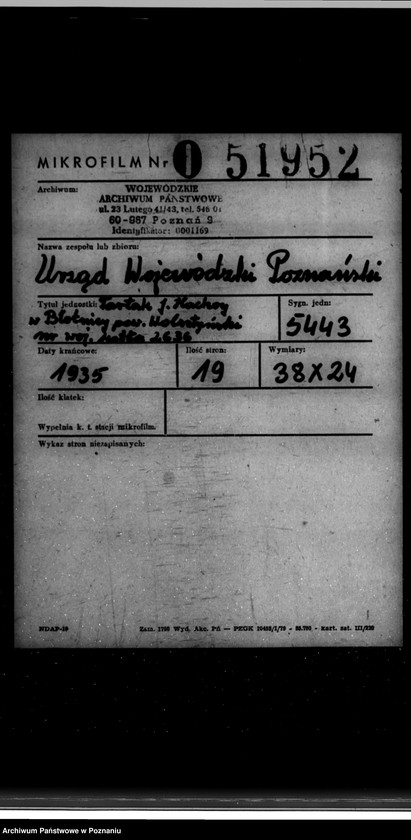 MIKROFILM Nr 0 51952
Archiwum: WOJEWÓDZKIE
ARCHIWUM PAŃSTWOWE
ul. 23 Lutego 41/43, tel. 546 01
60-967 Poznań 9
Identyfikator: 0001169
Nazwa zespołu lub zbioru:
Urząd Wojewódzki Poznański
Tytuł jednostki: Tartak J. Hachoy
w Błotnicy pow. Wolsztyński
Nr woj. 2636
Sygn. jedn:
5443
Daty krańcowe:
1935
Ilość stron:
19
Wymiary:
38X24
Ilość klatek:
Wypełnia k. t. stacji mikrofilm.
Wykaz stron niezapisanych:
NDAP-59
Zam. 1700 Wyd. Akc. Pń — PZGK
kart. sat. III/220
Archiwum Państwowe w Poznaniu